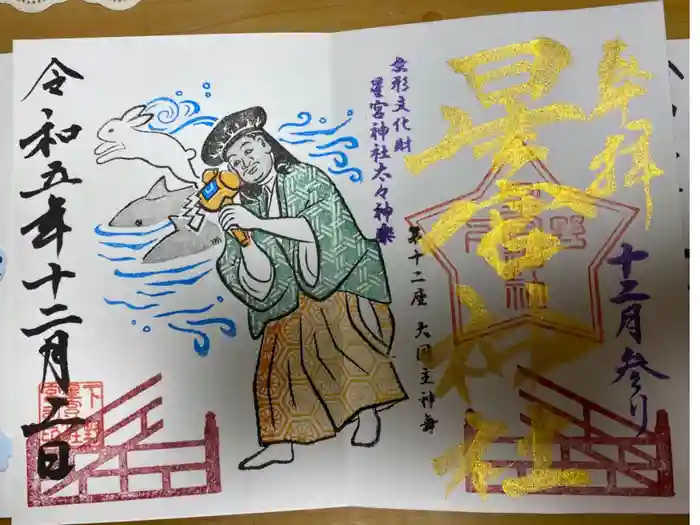 奉拝
星宮神社
十二月参り
無形文化財
星宮神社太々神楽
第十二座 大国主神舞
令和五年十二月二日